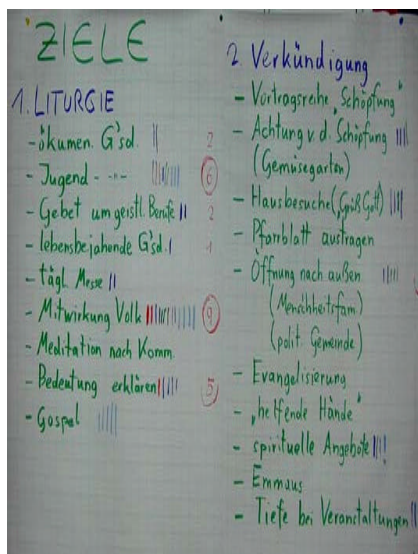 ZIELE
1. LITURGIE
- ökumen. G'sd. 2
- Jugend - " - 6
- Gebet um geistl. Berufe 2
- lebensbejahende G'sd. 1
- tägl. Messe
- Mitwirkung Volk 9
- Meditation nach Komm.
- Bedeutung erklären 5
- Gospel
2. Verkündigung
- Vortragsreihe "Schöpfung"
- Achtung v. d. "Schöpfung"
(Gemüsegarten)
- Hausbesuche ("Grüß Gott")
- Pfarrblatt austragen
- Öffnung nach außen
(Menschheitsfam.)
(polit. Gemeinde)
- Evangelisierung
- "helfende Hände"
- spirituelle Angebote
- Emmaus
- Tiefe bei Veranstaltungen